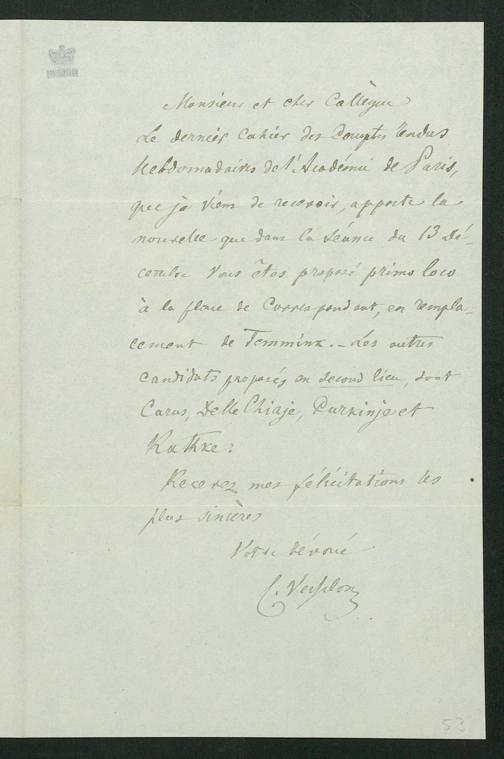 Monsieur et cher Collègue
Le dernier Cahier des Comptes rendus
hebdomadaires de l'Académie de Paris,
que je viens de recevoir, apporte la
nouvelle que dans la Séance du 13 Dé-
cembre Vous êtes proposé primo loco
à la place de Correspondant, en rempla-
cement de Temminx. - Les autres
candidats proposés en second lieu, sont
Carus, Delle Chiaje, Purkinje et
Rathke:
Recevez mes félicitations les
plus sincères
Votre dévoué
53